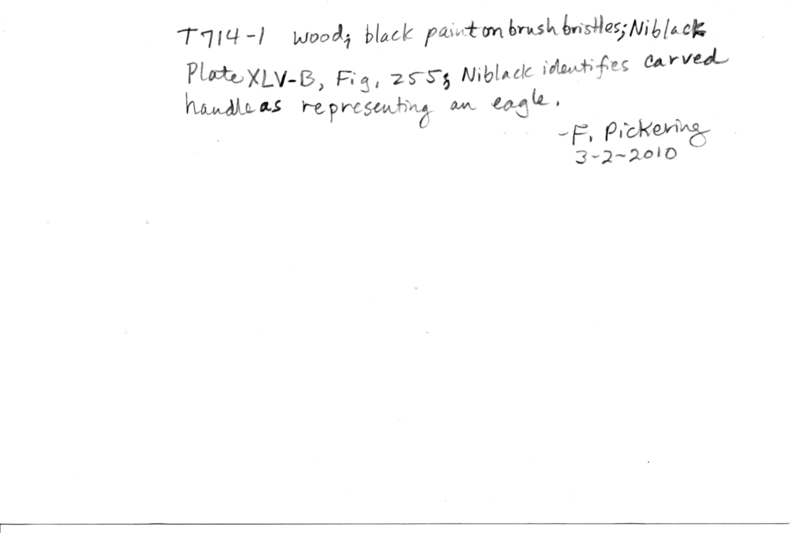 T714-1 wood; black paint on brush bristles; Niblack
Plate XLV-B, Fig. 255; Niblack identifies carved
handle as representing an eagle.
-F. Pickering
3-2-2010